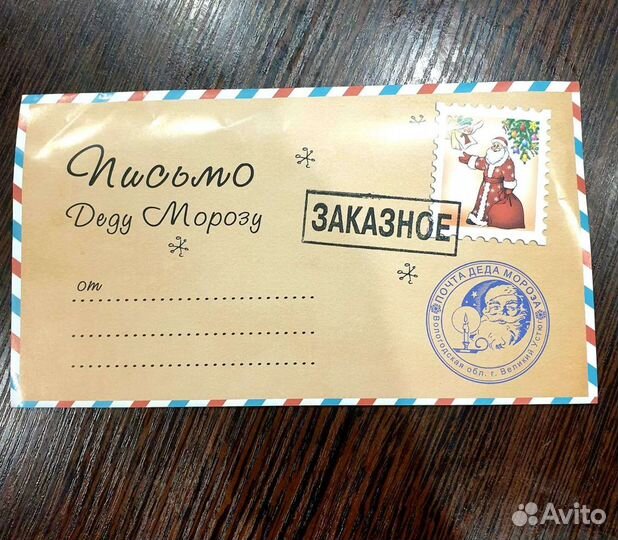 Письмо
Деду Морозу
ЗАКАЗНОЕ
от
ПОЧТА ДЕДА МОРОЗА
Вологодская обл. г. Великий Устюг
Avito